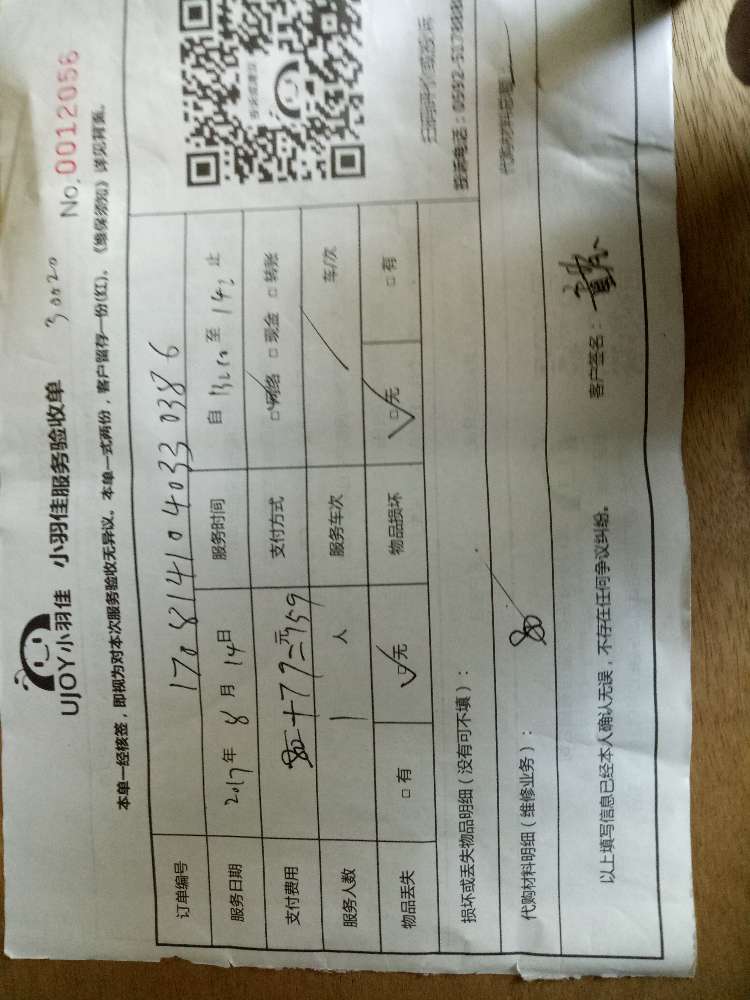 UJOY小羽佳 小羽佳服务验收单 30020 No.0012056
本单一经核签，即视为对本次服务验收无异议。本单一式两份，客户留存一份(红)。《维保须知》详见背面。
订单编号 170814104033 0386
服务日期 2017年 8月 14日 服务时间 自 至 止
支付费用 80+79=159 元 支付方式 □网络 □现金 □转账
服务人数 1 人 服务车次 车/次
物品丢失 □有 □无 物品损坏 □无 □有
扫码评价或投诉
投诉电话：0592-5178888
损坏或丢失物品明细（没有可不填）：
代购材料明细（维修业务）： 80 代购材料总额
以上填写信息已经本人确认无误，不存在任何争议纠纷。 客户签名：